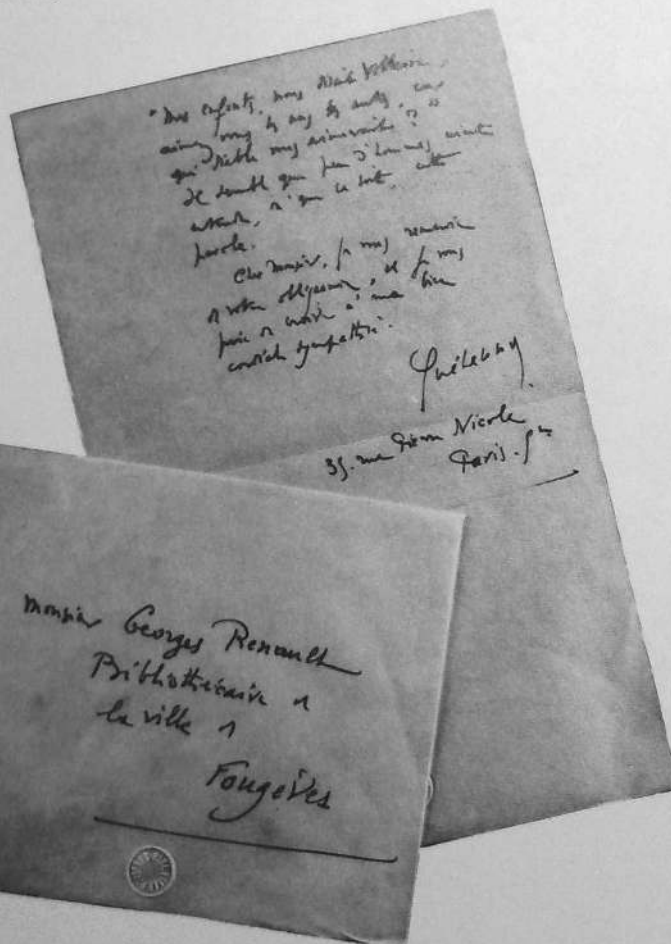 "Mes enfants, nous disait Voltaire,
aimez vous les uns les autres, car
qui diable vous aimerait? "
Il semble que peu d'hommes
entende, que ce soit, cette
parole.
Cher Monsieur, je vous remercie
de votre obligeance, et je vous
prie de croire à ma bien
cordiale sympathie.
Guéhenno
35. rue Pierre Nicole
Paris. 5e
Monsieur Georges Renault
Bibliothécaire de
la ville de
Fougères